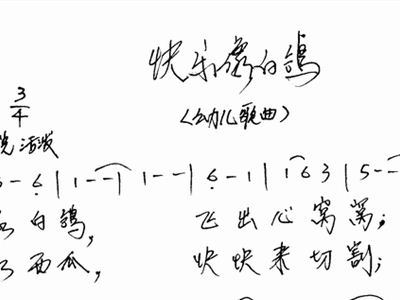 快乐白鸽
3/4
(幼儿歌曲)
活泼
- 6 | 1 - - | 1 - - | 6 - 1 | 1 6 3 | 5 - -
白鸽, 飞出心窝窝;
西瓜, 快快来切割;